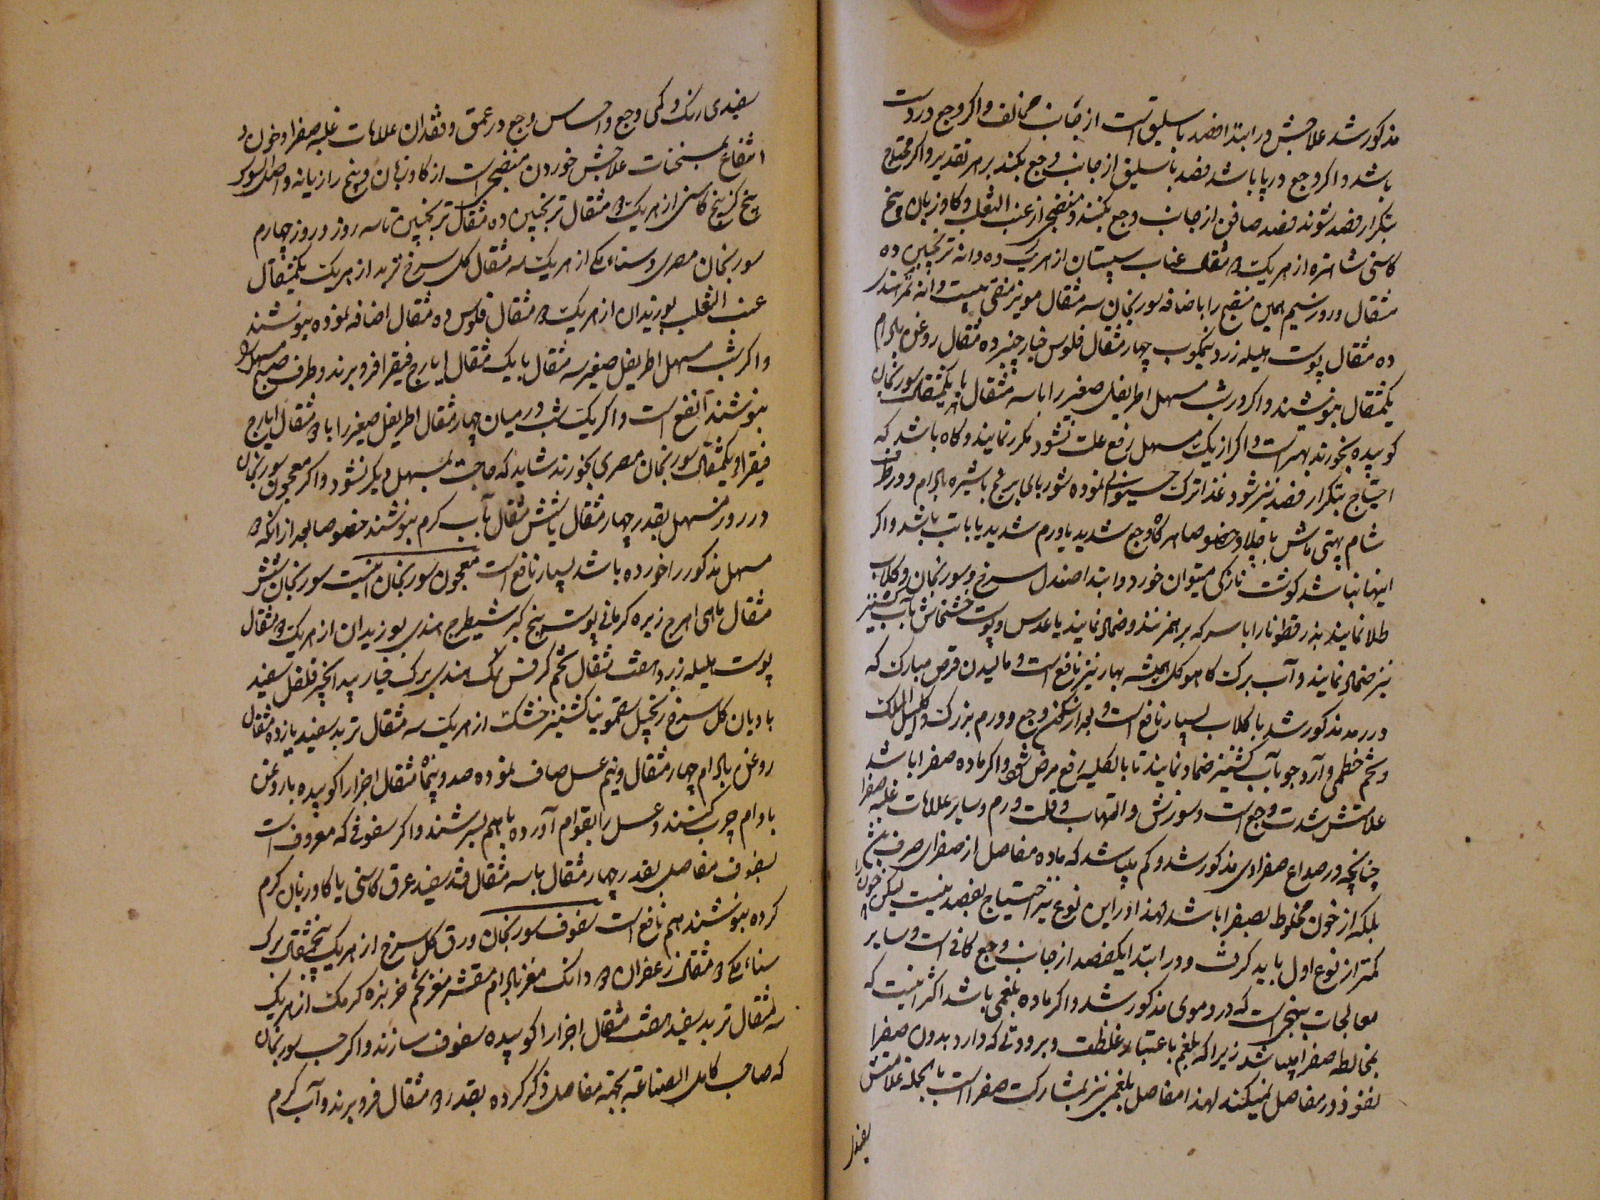 مذکور شد علاجش در ابتدا فصد باسلیق است از جانب مخالف و اکر وجع در دست
باشد و اکر وجع در پا باشد فصد باسلیق از جانب وجع بکنند بر هر تقدیر و اکر محتاج
بتکرار فصد شوند فصد صافن از جانب وجع بکنند و منضجی از عنب الثعلب و کاوزبان و بیخ
کاسنی شاهتره از هر یک دو مثقال عناب سپستان از هر یک ده دانه ترنجبین ده
مثقال و روز سیم همین منضج را باضافه سورنجان سه مثقال مویز منقی بیست دانه تمر هندی
ده مثقال پوست هلیله زرد نیمکوب چهار مثقال فلوس خیار چنبر ده مثقال روغن بادام
یکمثقال بنوشند و اکر در شب مسهل اطریفل صغیر را با سه مثقال با یکمثقال سورنجان
کوبیده بخورند بهتر است و اکر از یک مسهل رفع علت نشود مکرر نمایند و کاه باشد که
احتیاج بتکرار فصد نیز شود غذا ترک حیوانی نموده شوربای برنج با شیره بادام و در وقت
شام بهتی ماش با چلاو خصوصا هرکاه وجع شدید یا ورم شدید یا با تب باشد و اکر
اینها نباشد کوشت نازکی میتوان خورد و ابتدا صندل سرخ و سورنجان و کلاب
طلا نمایند بذر قطونا را با سرکه برهم زنند و ضماد نمایند یا عدس و پوست خشخاش بآب کشنیز
نیز ضماد نمایند و آب برک کاهو کل همیشه بهار نیز نافع است و مالیدن قرص مبارک که
در رمد مذکور شد با کلاب بسیار نافع است و بعد از تسکین وجع و ورم بزرک و اکلیل الملک
و تخم خطمی و آرد جو بآب کشنیز ضماد نمایند تا بالکلیه رفع مرض شود و اکر ماده صفرا باشد
علامتش شدت وجع است و سوزش و التهاب و قلت ورم و سایر علامات غلبه صفرا
چنانچه در صداع صفراوی مذکور شد و کم میباشد که ماده مفاصل از صفرای صرف باشد
بلکه از خون مخلوط بصفرا باشد لهذا در این نوع نیز احتیاج بفصد هست لیکن خون را
کمتر از نوع اول باید کرفت و در ابتدا یک فصد از جانب وجع کافی است و سایر
معالجات بنهجی است که در دموی مذکور شد و اکر ماده بلغمی باشد اکثر اینست که
بمخالطه صفرا میباشد زیرا که بلغم باعتبار غلظت و برودتی که دارد بدون صفرا
نفوذ در مفاصل نمیکند لهذا مفاصل بلغمی نیز بمشارکت صفرا است بالجمله علامتش
سفیدی
سفیدی رنک و کمی وجع و احساس وجع در عمق و فقدان علامات غلبه صفرا و خون و
انتفاع بمسخنات علاجش خوردن منضجی است از کاوزبان و بیخ رازیانه و اصل السوس
بیخ کبر بیخ کاسنی از هر یک دو مثقال ترنجبین ده مثقال ترنجبین تا سه روز و روز چهارم
سورنجان مصری و سناء مکی از هر یک سه مثقال کل سرخ تربد از هر یک یکمثقال
عنب الثعلب بوزیدان از هر یک دو مثقال فلوس ده مثقال اضافه نموده بنوشند
و اکر شب مسهل اطریفل صغیر سه مثقال با یک مثقال ایارج فیقرا فرو برند و طرف صبح مسهل را
بنوشند انفع است و اکر یک شب در میان چهار مثقال اطریفل صغیر را با دو مثقال ایارج
فیقرا و یکمثقال سورنجان مصری بخورند شاید که حاجت بمسهل دیکر نشود و اکر معجون سورنجان
در روز مسهل بقدر چهار مثقال یا شش مثقال بآب کرم بنوشند خصوصا بعد از آنکه دو
مسهل مذکور را خورده باشد بسیار نافع است معجون سورنجان اینست سورنجان شش
مثقال ماهی زهرج زیره کرمانی پوست بیخ کبر شیطرج هندی بوزیدان از هر یک دو مثقال
پوست هلیله زرد هفت مثقال تخم کرفس نمک هندی برک خیار بید انجیر فلفل سفید
بادیان کل سرخ زنجبیل سقمونیا کشنیز خشک از هر یک سه مثقال تربد سفید یازده مثقال
روغن بادام چهار مثقال و نیم عسل صاف نموده صد و پنجاه مثقال اجزا را کوبیده با روغن
بادام چرب کنند و عسل را بقوام آورده با هم بسرشند و اکر سفوفی که معروف است
بسفوف مفاصل بقدر چهار مثقال با سه مثقال قند سفید عرق کاسنی یا کاوزبان کرم
کرده بنوشند هم نافع است سفوف سورنجان ورق کل سرخ از هر یک پنجمثقال برک
سناء مکی دو مثقال زعفران دو دانک مغز بادام مقشر مغز تخم خربزه کرمک از هر یک
سه مثقال تربد سفید هفت مثقال اجزا را کوبیده سفوف سازند و اکر حب سورنجان
که صاحب کامل الصناعه بجهة مفاصل ذکر کرده بقدر دو مثقال فرو برند و آب کرم